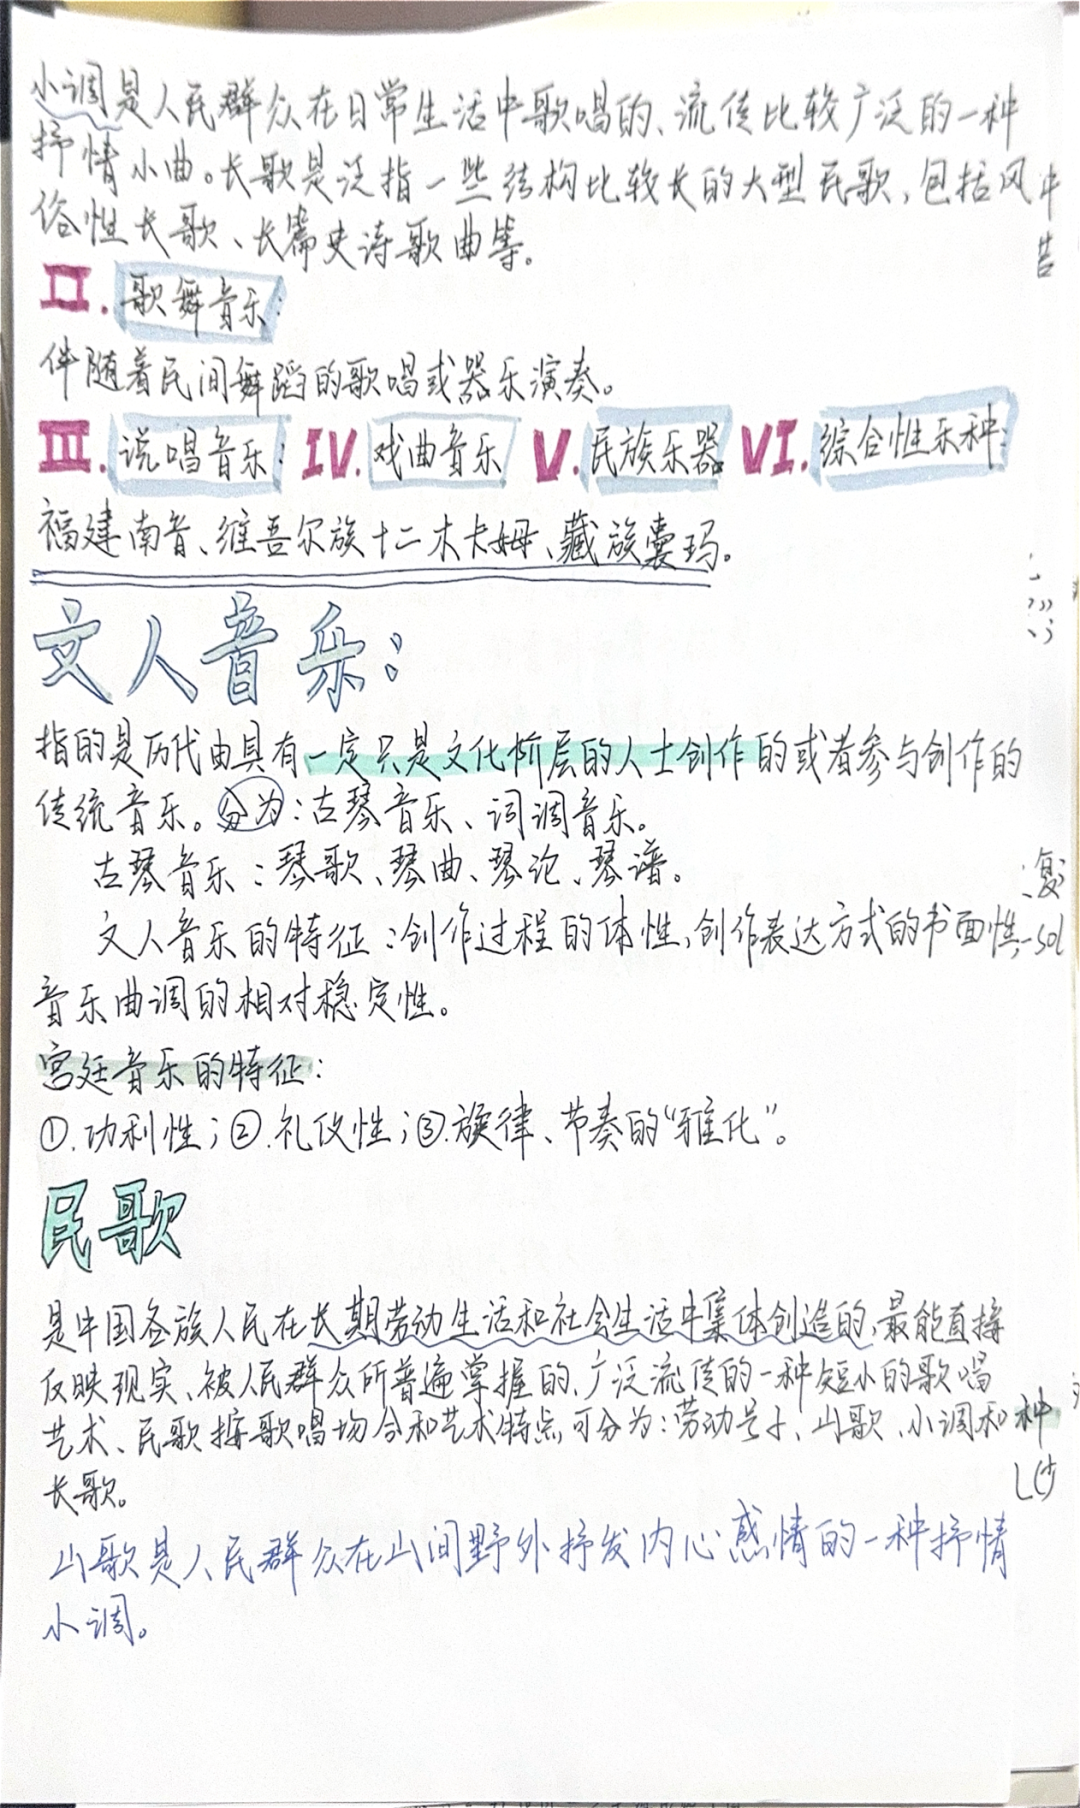 小调是人民群众在日常生活中歌唱的、流传比较广泛的一种
抒情小曲。长歌是泛指一些结构比较长的大型民歌，包括风
俗性长歌、长篇史诗歌曲等。
II. 歌舞音乐:
伴随着民间舞蹈的歌唱或器乐演奏。
III. 说唱音乐: IV. 戏曲音乐 V. 民族乐器 VI. 综合性乐种:
福建南音、维吾尔族十二木卡姆、藏族囊玛。
文人音乐:
指的是历代由具有一定只是文化阶层的人士创作的或者参与创作的
传统音乐。分为:古琴音乐、词调音乐。
古琴音乐:琴歌、琴曲、琴论、琴谱。
文人音乐的特征:创作过程的体性,创作表达方式的书面性,
音乐曲调的相对稳定性。
宫廷音乐的特征:
①.功利性;②.礼仪性;③.旋律、节奏的“雅化”。
民歌
是中国各族人民在长期劳动生活和社会生活中集体创造的,最能直接
反映现实、被人民群众所普遍掌握的、广泛流传的一种短小的歌唱
艺术、民歌按歌唱场合和艺术特点可分为:劳动号子、山歌、小调和
长歌。
山歌是人民群众在山间野外抒发内心感情的一种抒情
小调。
复
-sol
种